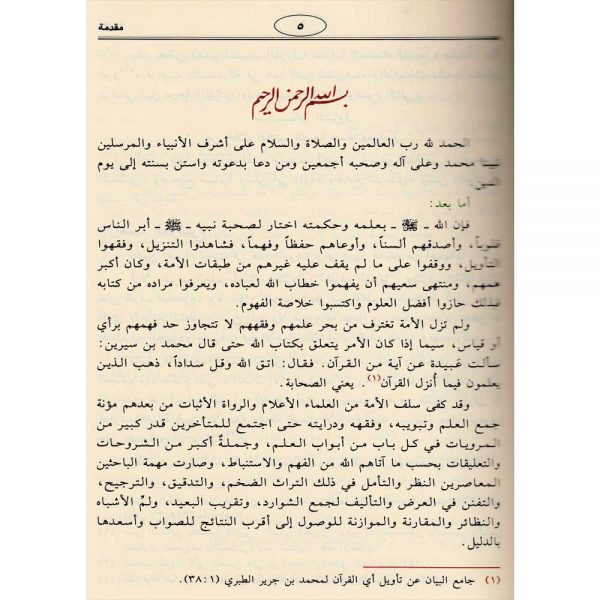 مقدمة
٥
بسم الله الرحمن الرحيم
الحمد لله رب العالمين والصلاة والسلام على أشرف الأنبياء والمرسلين
نبينا محمد وعلى آله وصحبه أجمعين ومن دعا بدعوته واستن بسنته إلى يوم
الدين.
أما بعد:
فإن الله - ﷻ - بعلمه وحكمته اختار لصحبة نبيه - ﷺ - أبر الناس
قلوباً، وأصدقهم ألسناً، وأوعاهم حفظاً وفهماً، فشاهدوا التنزيل، وفقهوا
التأويل، ووقفوا على ما لم يقف عليه غيرهم من طبقات الأمة، وكان أكبر
همهم، ومنتهى سعيهم أن يفهموا خطاب الله لعباده، ويعرفوا مراده من كتابه
فبذلك حازوا أفضل العلوم واكتسبوا خلاصة الفهوم.
ولم تزل الأمة تغترف من بحر علمهم وفقههم لا تتجاوز حد فهمهم برأي
أو قياس، سيما إذا كان الأمر يتعلق بكتاب الله حتى قال محمد بن سيرين:
سألت عَبيدة عن آية من القرآن. فقال: اتق الله وقل سداداً، ذهب الذين
يعلمون فيما أُنزل القرآن(١). يعني الصحابة.
وقد كفى سلف الأمة من العلماء الأعلام والرواة الأثبات من بعدهم مؤنة
جمع العلم وتبويبه، وفقهه ودرايته حتى اجتمع للمتأخرين قدر كبير من
المرويات في كل باب من أبواب العلم، وجملةٌ أكبر من الشروحات
والتعليقات بحسب ما آتاهم الله من الفهم والاستنباط، وصارت مهمة الباحثين
المعاصرين النظر والتأمل في ذلك التراث الضخم، والتدقيق، والترجيح،
والتفنن في العرض والتأليف لجمع الشوارد، وتقريب البعيد، ولمِّ الأشباه
والنظائر والمقارنة والموازنة للوصول إلى أقرب النتائج للصواب وأسعدها
بالدليل.
(١) جامع البيان عن تأويل أي القرآن لمحمد بن جرير الطبري (١: ٣٨).